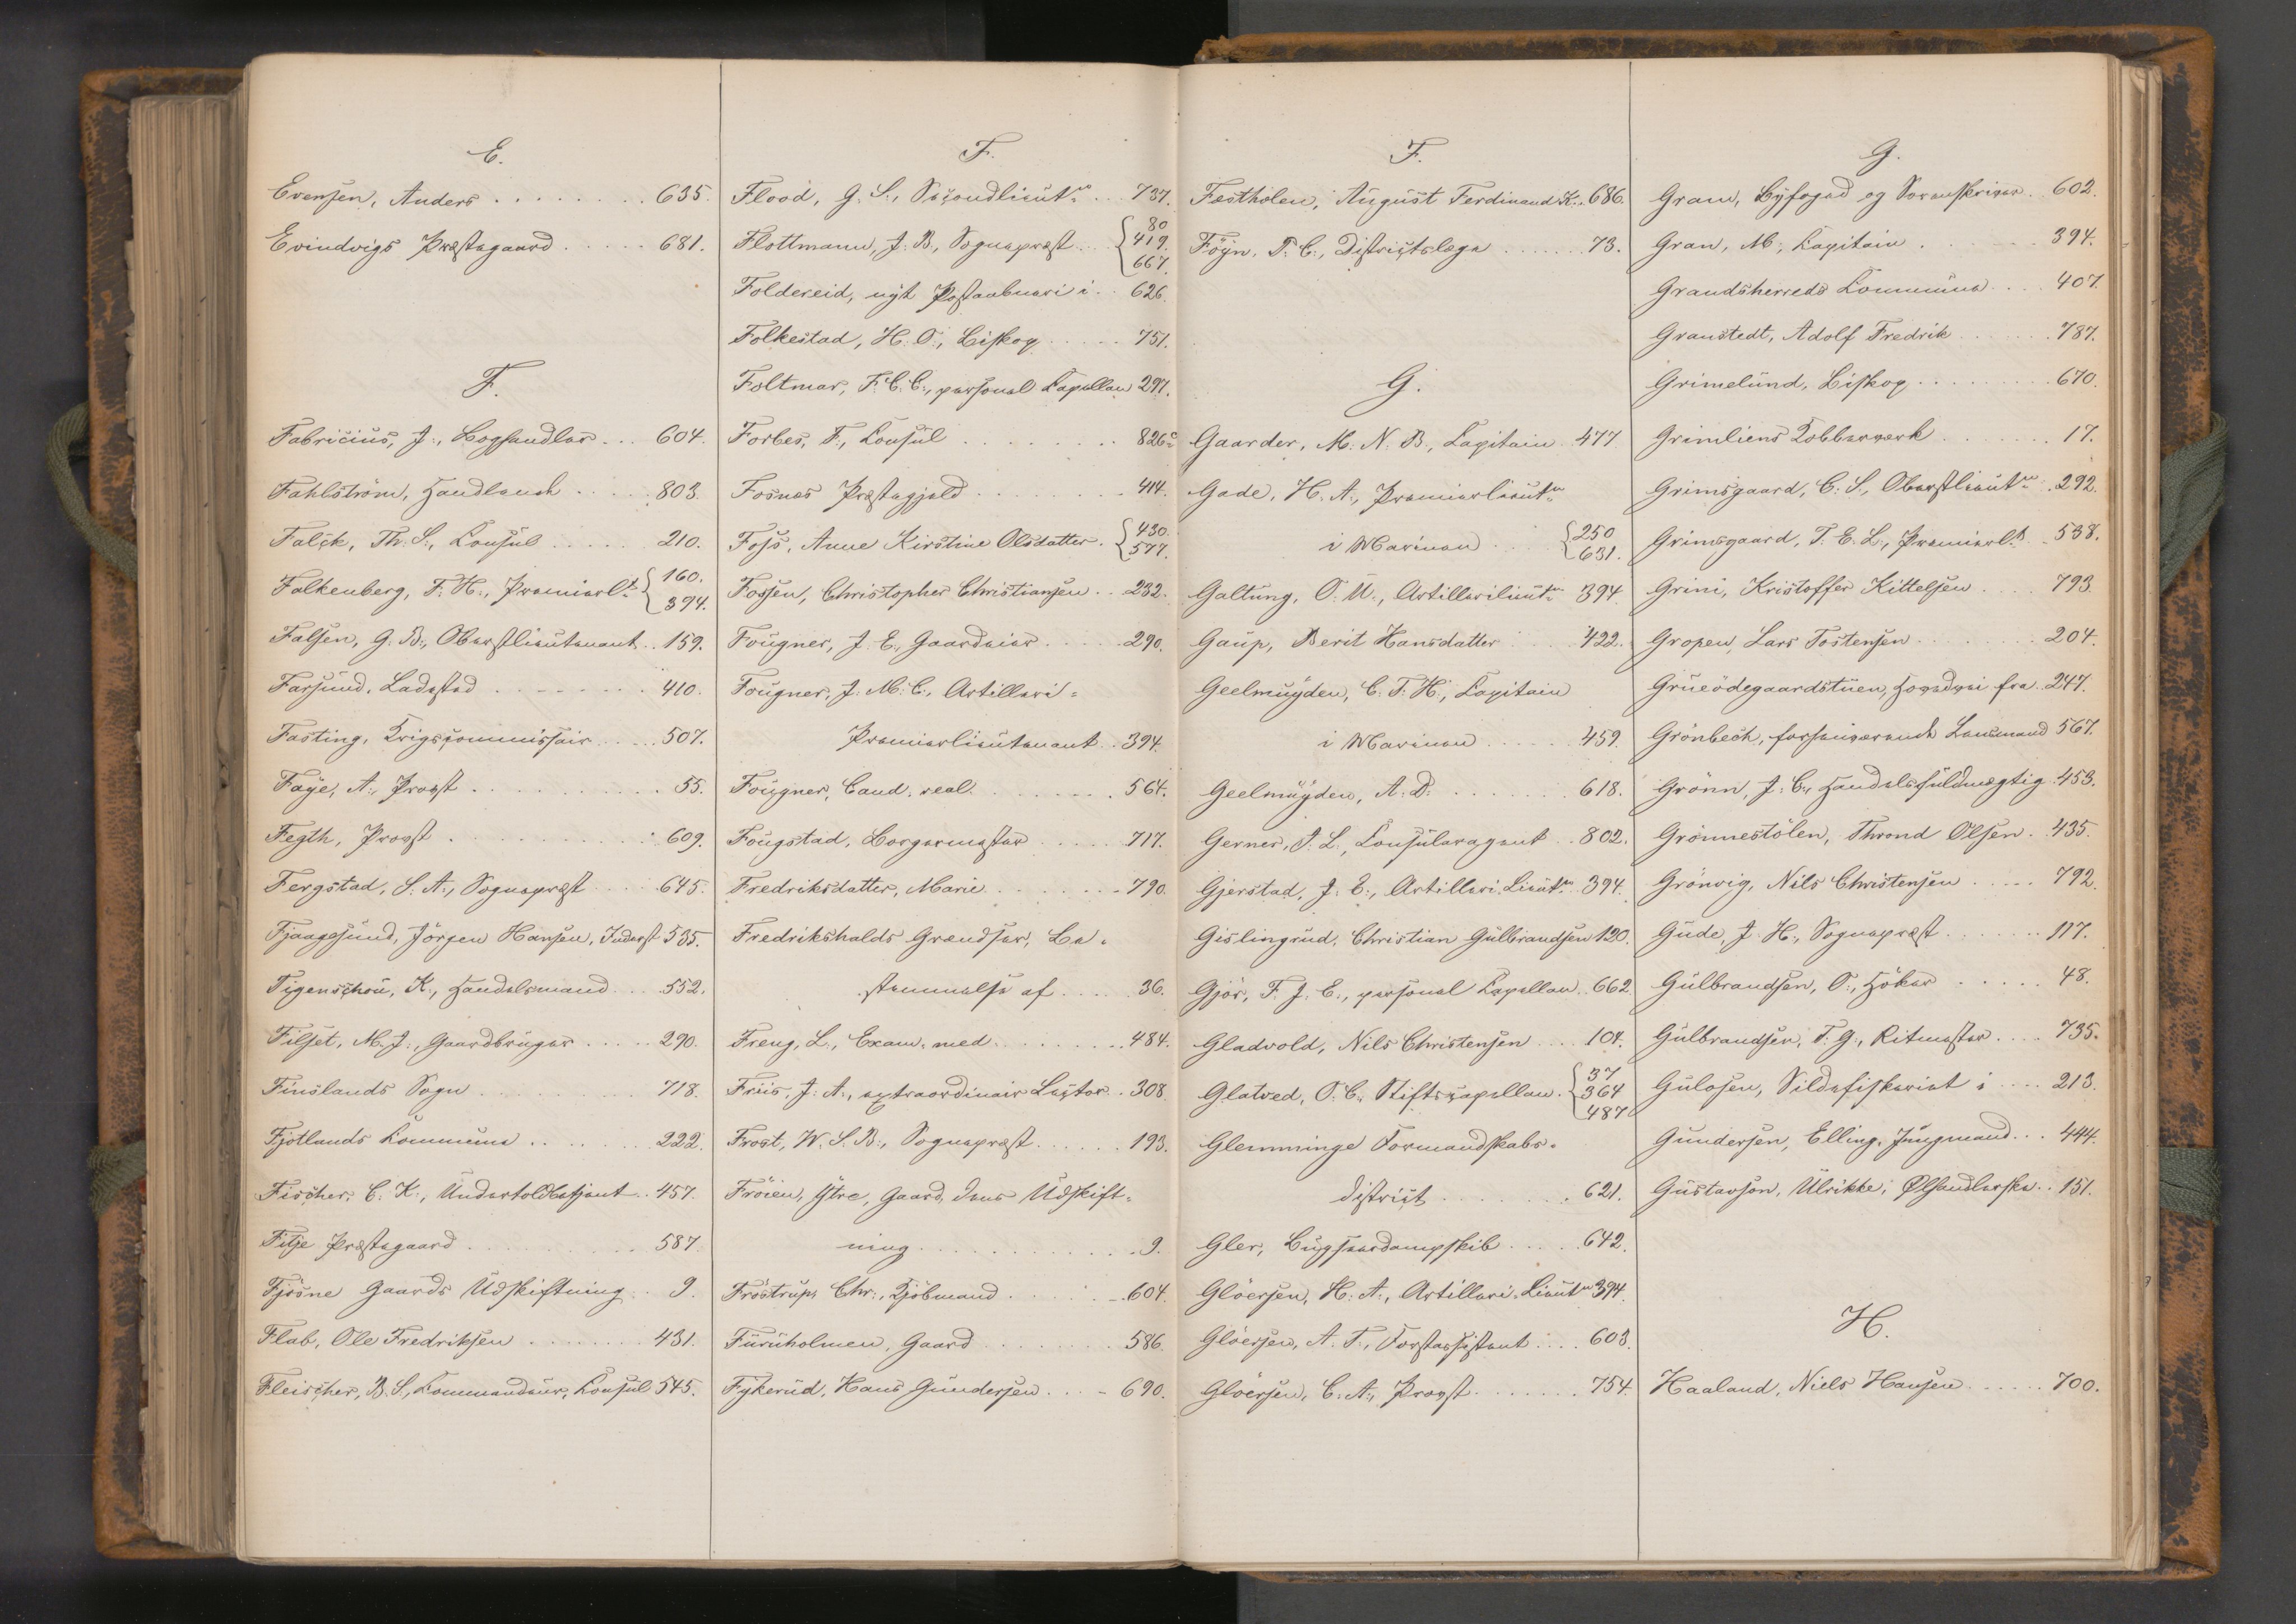 E.
Evensen, Anders ........ 635.
Evindvigs Præstegaard ..... 681.
F.
Fabricius, J., Boghandler ... 604.
Fahlström, Handlende ..... 803.
Falck, Th. S., Konsul ..... 210.
Falkenberg, F. H., Premierlt. {160. 394.
Falsen, G. B., Oberstlieutenant .. 159.
Farsund, Ladested ....... 410.
Fasting, Krigscommissair ..... 507.
Faye, A., Provst .......... 55.
Fegth, Provst .......... 609.
Fergstad, S. A., Sognepræst .... 645.
Fjaagesund, Jörgen Hansen, Inderst 535.
Figenschou, K., Handelsmand .... 552.
Filset, M. J., Gaardbruger ..... 290.
Finslands Sogn ......... 718.
Fjotlands Kommune ...... 222.
Fischer, C. K., Undertoldbetjent .. 457.
Fitje Præstegaard ......... 587.
Fjösne Gaards Udskiftning .. 9.
Flab, Ole Fredriksen ........ 431.
Fleischer, B. S., Kommandeur, Konsul 545.
F.
Flood, G. S., Secondlieutn. ... 737.
Flottmann, J. B., Sognepræst .. {80 419. 667.
Foldereid, nyt Postaabneri i .. 626.
Folkestad, H. O., Biskop ..... 751.
Foltmar, F. C. C., personel Kapellan 297.
Forbes, F., Konsul ........ 826c
Fosnes Præstegjeld ........ 414.
Foss, Anne Kirstine Olsdatter. {430. 577.
Fossen, Christopher Christiansen .. 232.
Fougner, J. E., Gaardeier ..... 290.
Fougner, J. M. C., Artilleri=
Premierlieutenant .. 394.
Fougner, Cand. real. ....... 564.
Fougstad, Borgermester ..... 717.
Fredriksdatter, Marie ....... 790.
Fredrikshalds Grændser, Be=
stemmelse af .... 36.
Freng, L., Exam. med. ....... 484.
Friis, J. A., extraordinair Lector .. 308.
Frost, W. S. B., Sognepræst ...... 193.
Fröien, Ytre, Gaard, dens Udskift=
ning ........... 9.
Fröstrup, Chr., Kjöbmand ...... 604.
Furuholmen, Gaard ........ 586.
Fykerud, Hans Gundersen .... 690.
F.
Fæstholen, August Ferdinand K. .. 686.
Föyn, P. C., Districtslæge ...... 73.
G.
Gaarder, M. N. B., Kapitain .. 477
Gade, H. A., Premierlieutn.
i Marinen .... {250 631.
Galtung, O. U., Artillerilieutn. 394.
Gaup, Berit Hansdatter ..... 422.
Geelmuyden, C. T. H., Kapitain
i Marinen ..... 459.
Geelmuyden, A. D. ....... 618.
Gerner, J. L., Konsularagent .. 802.
Gjerstad, J. E., Artilleri-Lieutn. 394.
Gislingrud, Christian Gulbrandsen 120.
Gjör, F. J. E., personel Kapellan .. 662.
Gladvold, Nils Christensen .... 104.
Glatved, O. C., Stiftscapellan. {37 364 487
Glemminge Formandskabs=
district ........ 621.
Gler, Bugserdampskib ..... 642.
Glöersen, H. A., Artilleri-Lieutn. 394.
Glöersen, A. T., Forstassistent .... 603.
Glöersen, C. A., Provst ....... 754.
G.
Gram, Byfoged og Sorenskriver . 602.
Gran, M., Kapitain ...... 394.
Grandsherreds Kommune .... 407.
Granstedt, Adolf Fredrik ...... 787.
Grimelund, Biskop ......... 670.
Grimliens Kobberværk ...... 17.
Grimsgaard, C. S., Oberstlieutn. . 292.
Grimsgaard, T. E. L., Premierlt. .. 538.
Grini, Kristoffer Kittelsen .... 793.
Gropen, Lars Tostensen ....... 204.
Grueödegaardstuen, Hovedvei fra . 247.
Grönbech, forhenværende Lensmand 567.
Grönn, J. C., Handelsfuldmægtig . 453.
Grönnestölen, Thrond Olsen . 435.
Grönvig, Nils Christensen ..... 792.
Gude, J. H., Sognepræst ....... 117.
Gulbrandsen, O., Höker ..... 48.
Gulbrandsen, T. G., Ritmester .... 735.
Gulosen, Sildefiskeriet i .... 213.
Gundersen, Elling, Jungmand ... 444.
Gustavson, Ulrikke, Ølhandlerske .. 151.
H.
Haaland, Niels Hansen ..... 700.